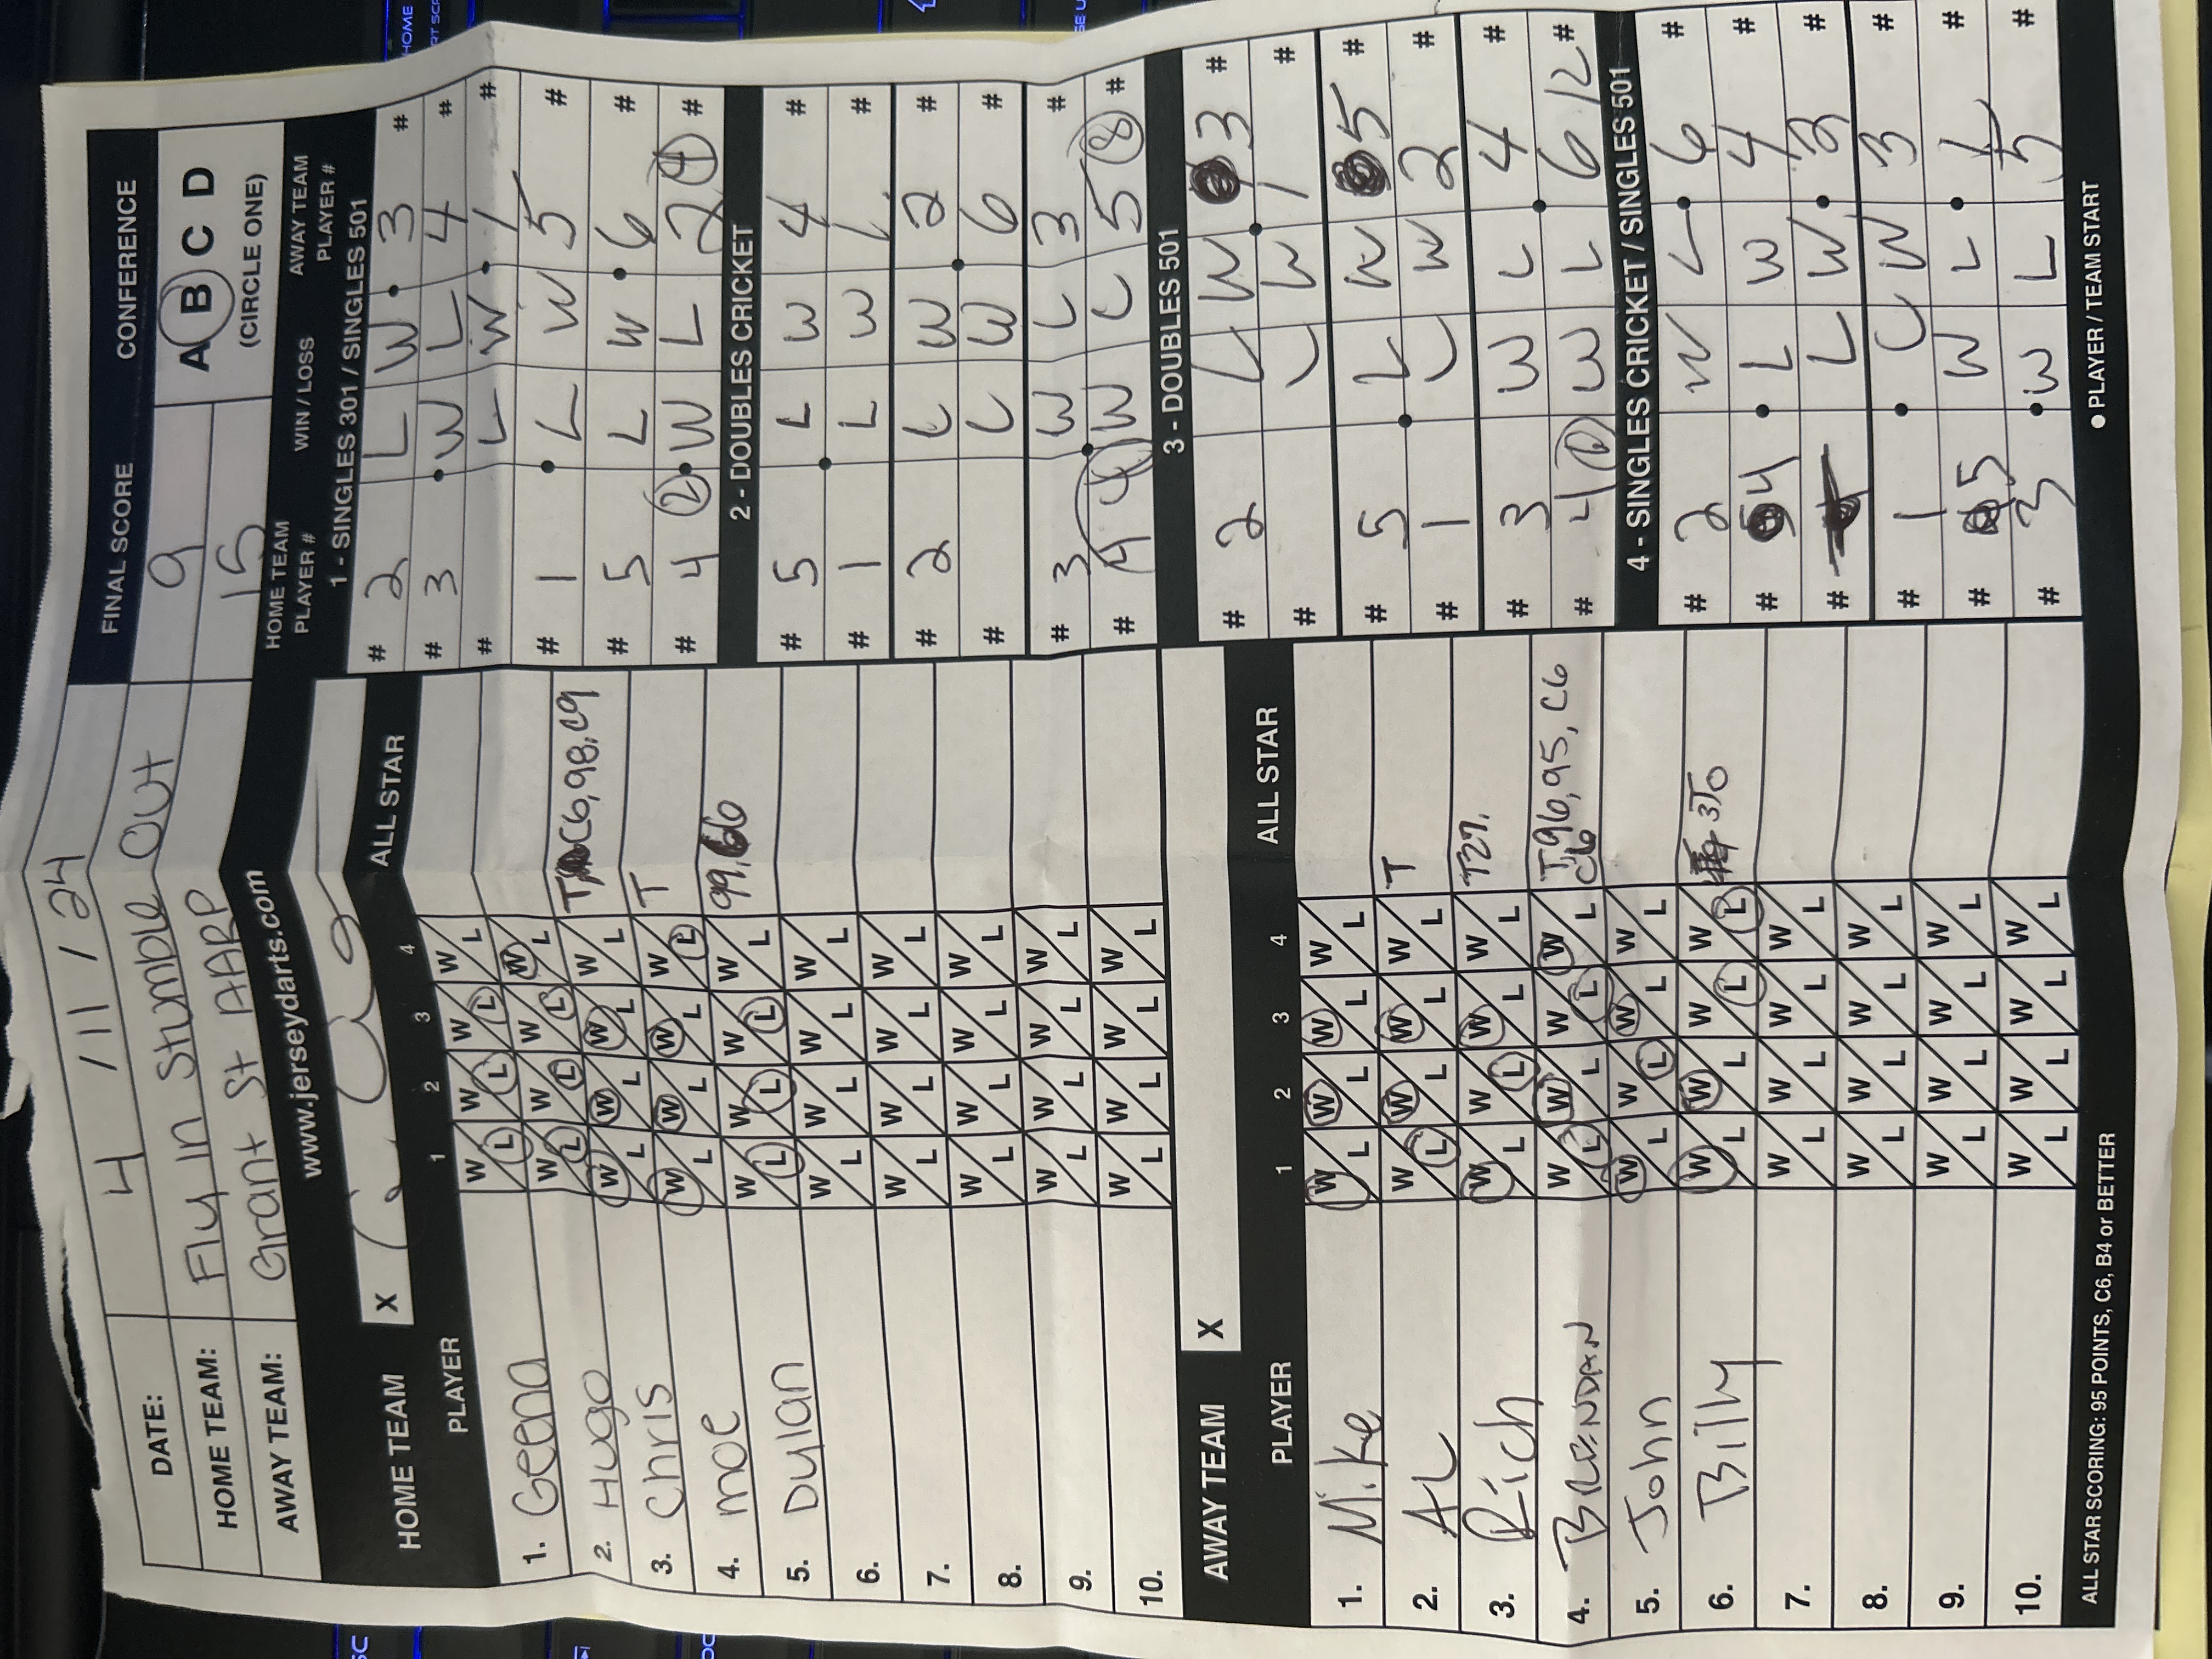 DATE: 4 / 11 / 24
FINAL SCORE CONFERENCE
HOME TEAM: Fly in Stumble Out 9
A B C D
AWAY TEAM: Grant St AARP 15
(CIRCLE ONE)
www.jerseydarts.com
HOME TEAM X
ALL STAR
PLAYER 1 2 3 4
1. Geena W L W L W L W L
2. Hugo W L W L W L W L T C6, 98, C9
3. Chris W L W L W L W L T
4. Moe W L W L W L W L 99,
5. Dylan W L W L W L W L
6. W L W L W L W L
7. W L W L W L W L
8. W L W L W L W L
9. W L W L W L W L
10. W L W L W L W L
AWAY TEAM X
PLAYER 1 2 3 4 ALL STAR
1. Mike W L W L W L W L
2. AL W L W L W L W L T
3. Rich W L W L W L W L T27,
4. BRENDAN W L W L W L W L T, 96, 95, C6
C6
5. John W L W L W L W L
6. Billy W L W L W L W L 3TO
7. W L W L W L W L
8. W L W L W L W L
9. W L W L W L W L
10. W L W L W L W L
ALL STAR SCORING: 95 POINTS, C6, B4 or BETTER
HOME TEAM PLAYER # WIN / LOSS AWAY TEAM PLAYER #
1 - SINGLES 301 / SINGLES 501
# 2 L W 3 #
# 3 W L 4 #
# L W 1 #
# 1 L W 5 #
# 5 L W 6 #
# 4 2 W L 2 4 #
2 - DOUBLES CRICKET
# 5 L W 4 #
# 1 L W 1 #
# 2 L W 2 #
# L W 6 #
# 3 W L 3 #
# 4 4 W L 5 8 #
3 - DOUBLES 501
# 2 L W 3 #
# L W 1 #
# 5 L W 5 #
# 1 L W 2 #
# 3 W L 4 #
# 4 W L 6 12 #
4 - SINGLES CRICKET / SINGLES 501
# 2 W L 6 #
# 4 L W 4 #
# L W 2 #
# 1 L W 3 #
# 5 W L 1 #
# 3 W L 5 #
● PLAYER / TEAM START